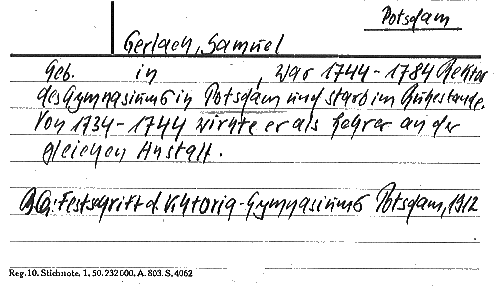 Potsdam
Gerlach, Samuel
Geb. in , war 1744-1784 Rektor
des Gymnasiums in Potsdam und starb im Ruhestande.
Von 1734-1744 wirkte er als Lehrer an der
gleichen Anstalt.
Festschrift d. Viktoria-Gymnasiums Potsdam, 1912
Reg. 10. Stichnote. 1. 50. 232000. A. 803. S. 4062